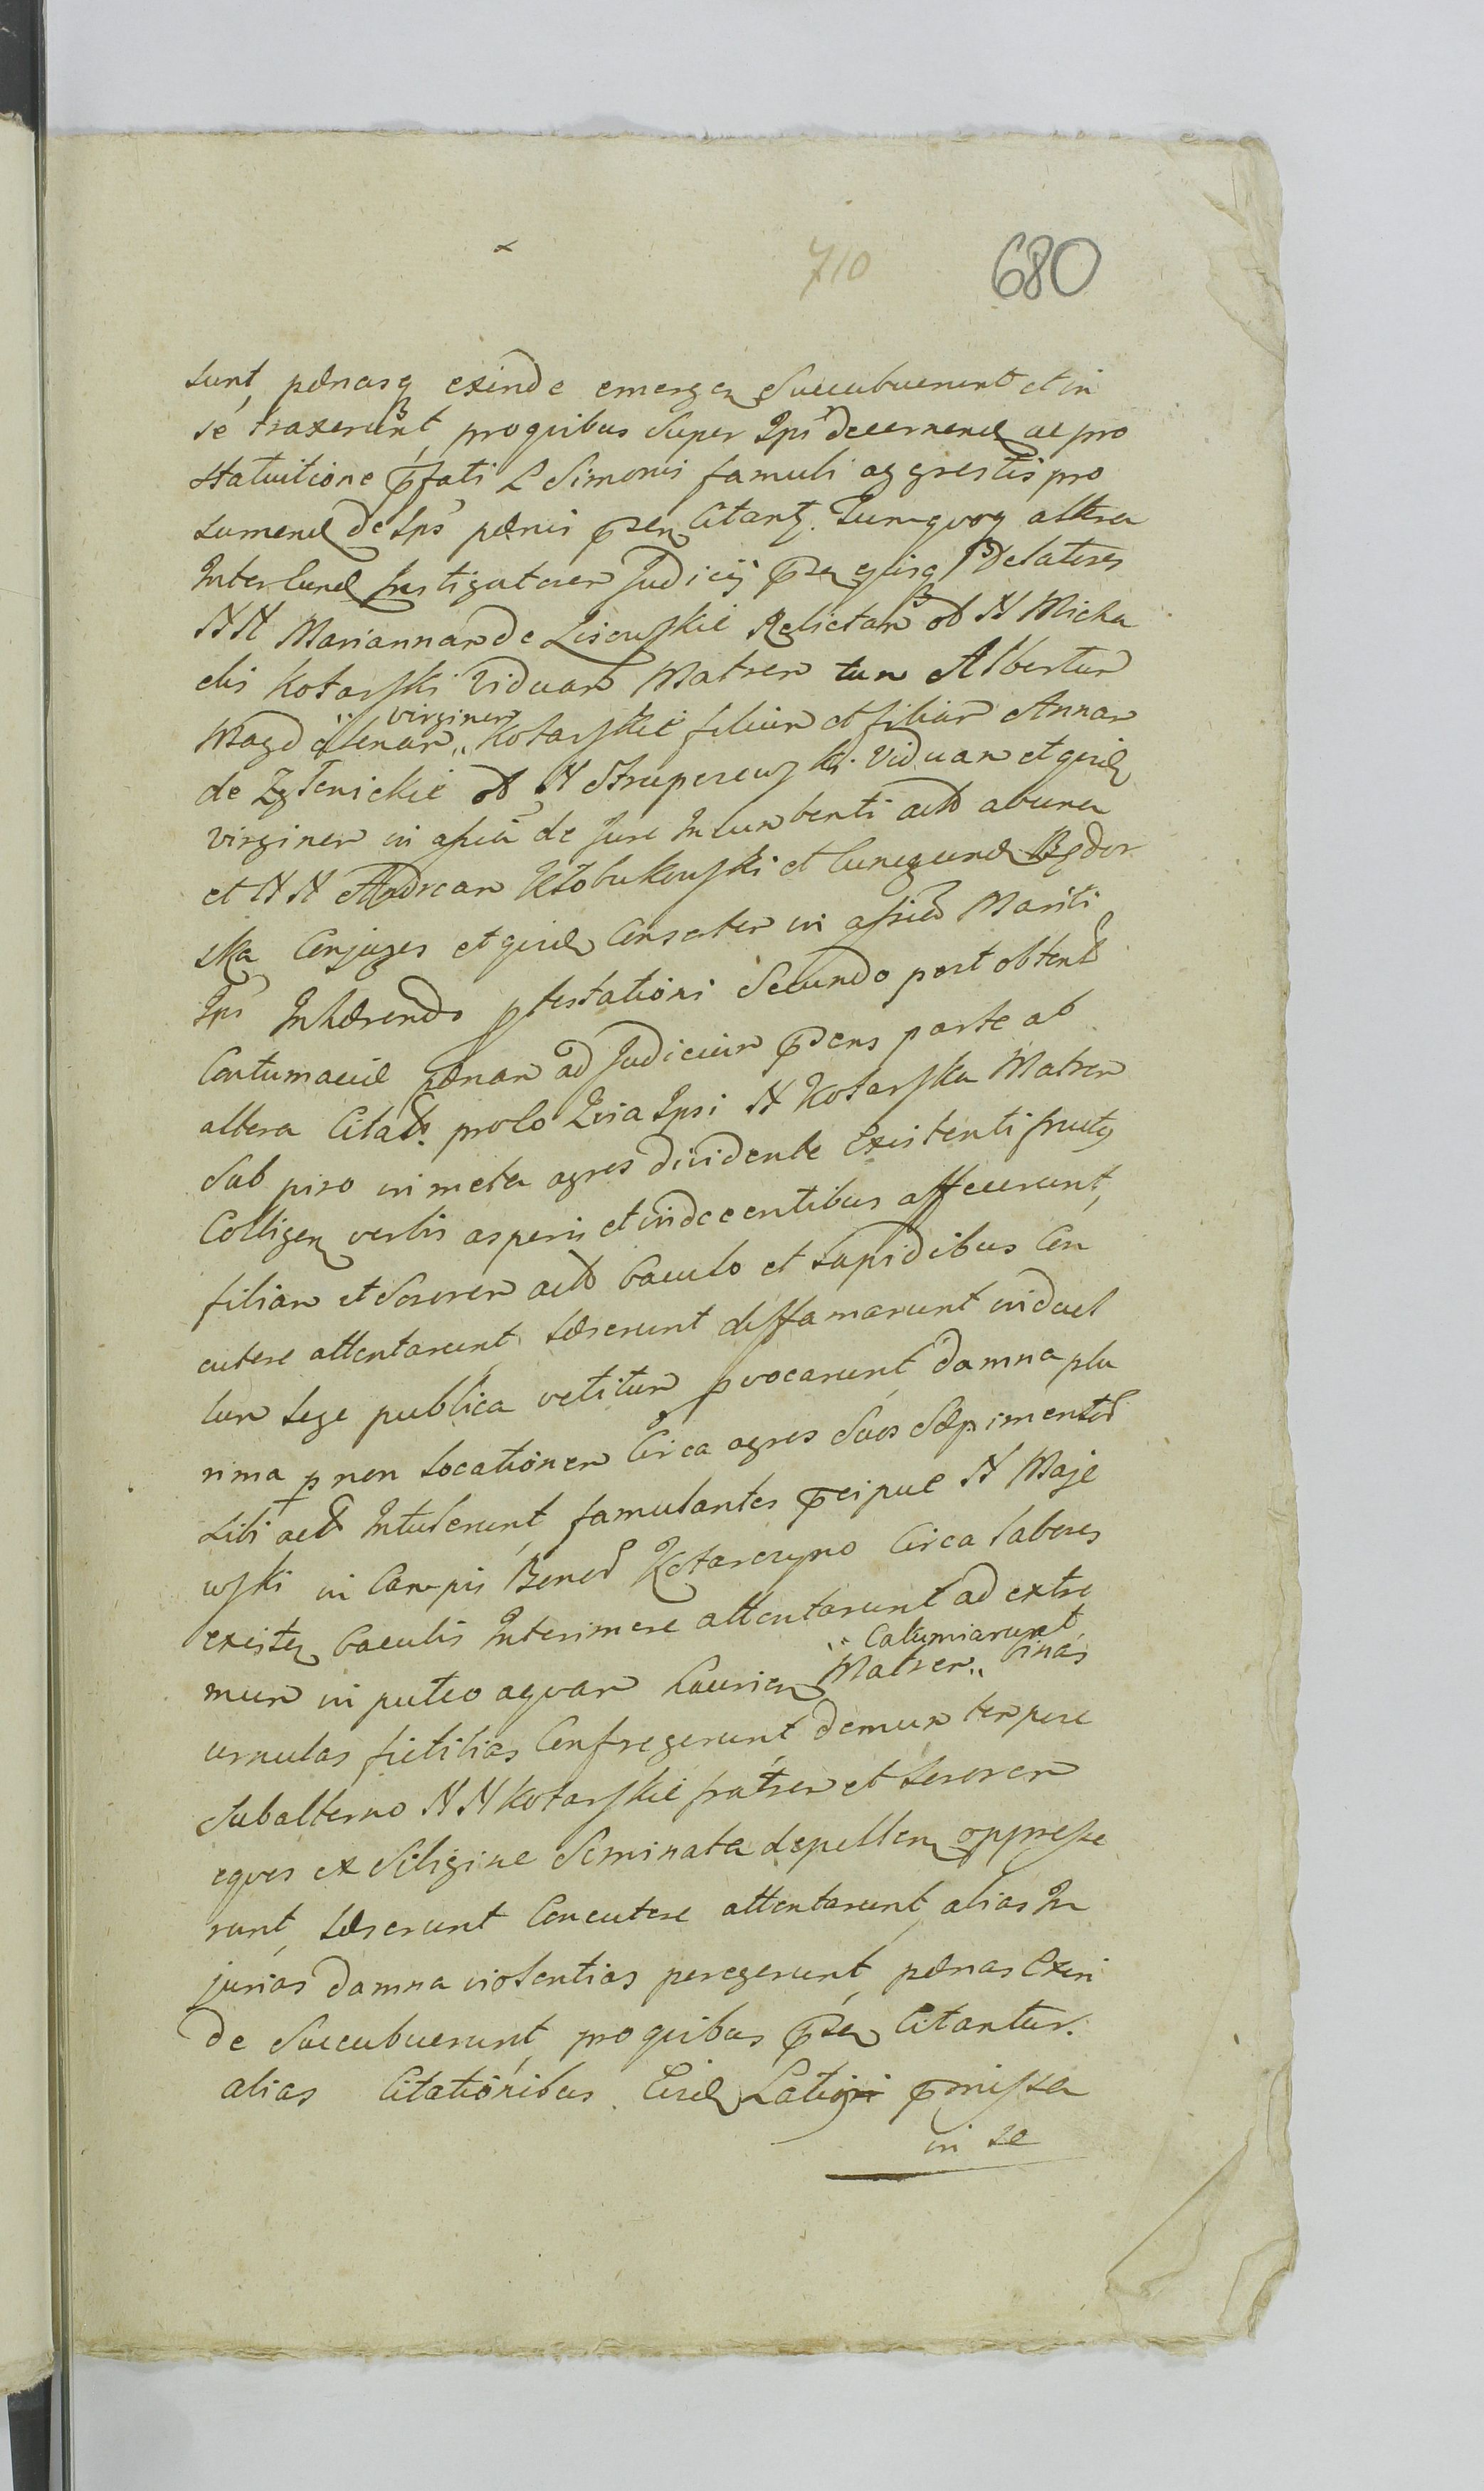 710 680
sunt, pœnasq exinde emergen Succubuerunt et in
se traxerunt, pro quibus Super Ips decernend ac pro
statuitione pfati L Simonis famuli aggrestis pro
sumend de Ips pœnis psen Citant. Tum quoq altera
Inter Cund Instigatorem Judicij psen ejusq Delatores
NN Mariannam de Lisowskie Relictam ol N Micha
elis Kotarski Viduam Matrem tum Albertum
virginem
Magdalenam Kotarskie filium et filiam Annam
de Zglenickie ol N Struperewski Viduam et gend
virginem in assia de Jure Incumbenti actt ab una
et NN Andream Kłobukowski et Cunegund Będor
ska Conjuges et gend Consorter in assia Mariti
Ips Inhærendo ptestationi Secundo post obtent
Contumaciæ pœnam ad Judicium psens parte ab
altera Citatt. pro eo Quia Ipsi N Kotarska Matrem
Sub piro in meta agros dividente Existenti fructus
Colligen verbis asperis et indecentibus affecerunt,
filiam et Sororem actt baculo et Lapidibus Con
cutere attentarunt, Læserunt diffamarunt in duel
lum Lege publica vetitum pvocarunt, damna plu
rima p non Locationem Circa agros Suos Sæpimentor
Sibi actt Intulerunt, famulantes pcipue N Maje
wski in Campis Bonor Kotarczyno Circa labores
existen baculis Interimere attentarunt ad extre
Calumiarunt,
mum in puteo aquam haurien Matrem binas
urnulas fictilias Confregerunt, demum tempore
Subalterno NN Kotarskie fratrem et Sororem
equos ex Siligine Seminata depellen oppresse
runt, Læserunt Concutere attentarunt, alias In
jurias damna violentias peregerunt, pœnas Exin
de Succubuerunt, pro quibus psen Citantur.
alias Citationibus Eisd Latiori pmissa
in se